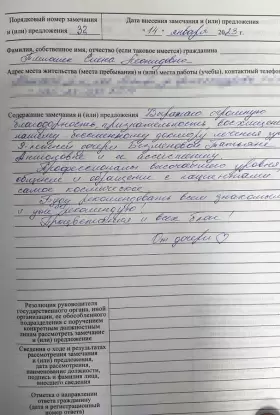 Порядковый номер замечания
и (или) предложения 32
Дата внесения замечания и (или) предложения
"14" января 2023 г.
Фамилия, собственное имя, отчество (если таковое имеется) гражданина
Елена Леонидовна
Адрес места жительства (места пребывания) и (или) места работы (учебы), контактный телефон
Содержание замечания и (или) предложения Выражаю огромную
благодарность, признательность,
нашему доктору
Татьяне
и её ассистенту.
Профессионалы высочайшего уровня
общение и обращение с пациентами
самое космическое.
Буду рекомендовать всем знакомым
и уже рекомендую!
Процветания и всех благ!
От дочери♡
Резолюция руководителя
государственного органа, иной
организации, ее обособленного
подразделения с поручением
конкретным должностным
лицам рассмотреть замечание
и (или) предложение
Сведения о ходе и результатах
рассмотрения замечания
и (или) предложения,
дата рассмотрения,
наименование должности,
подпись и фамилия лица,
внесшего сведения
Отметка о направлении
ответа гражданину
(дата и регистрационный
номер ответа)